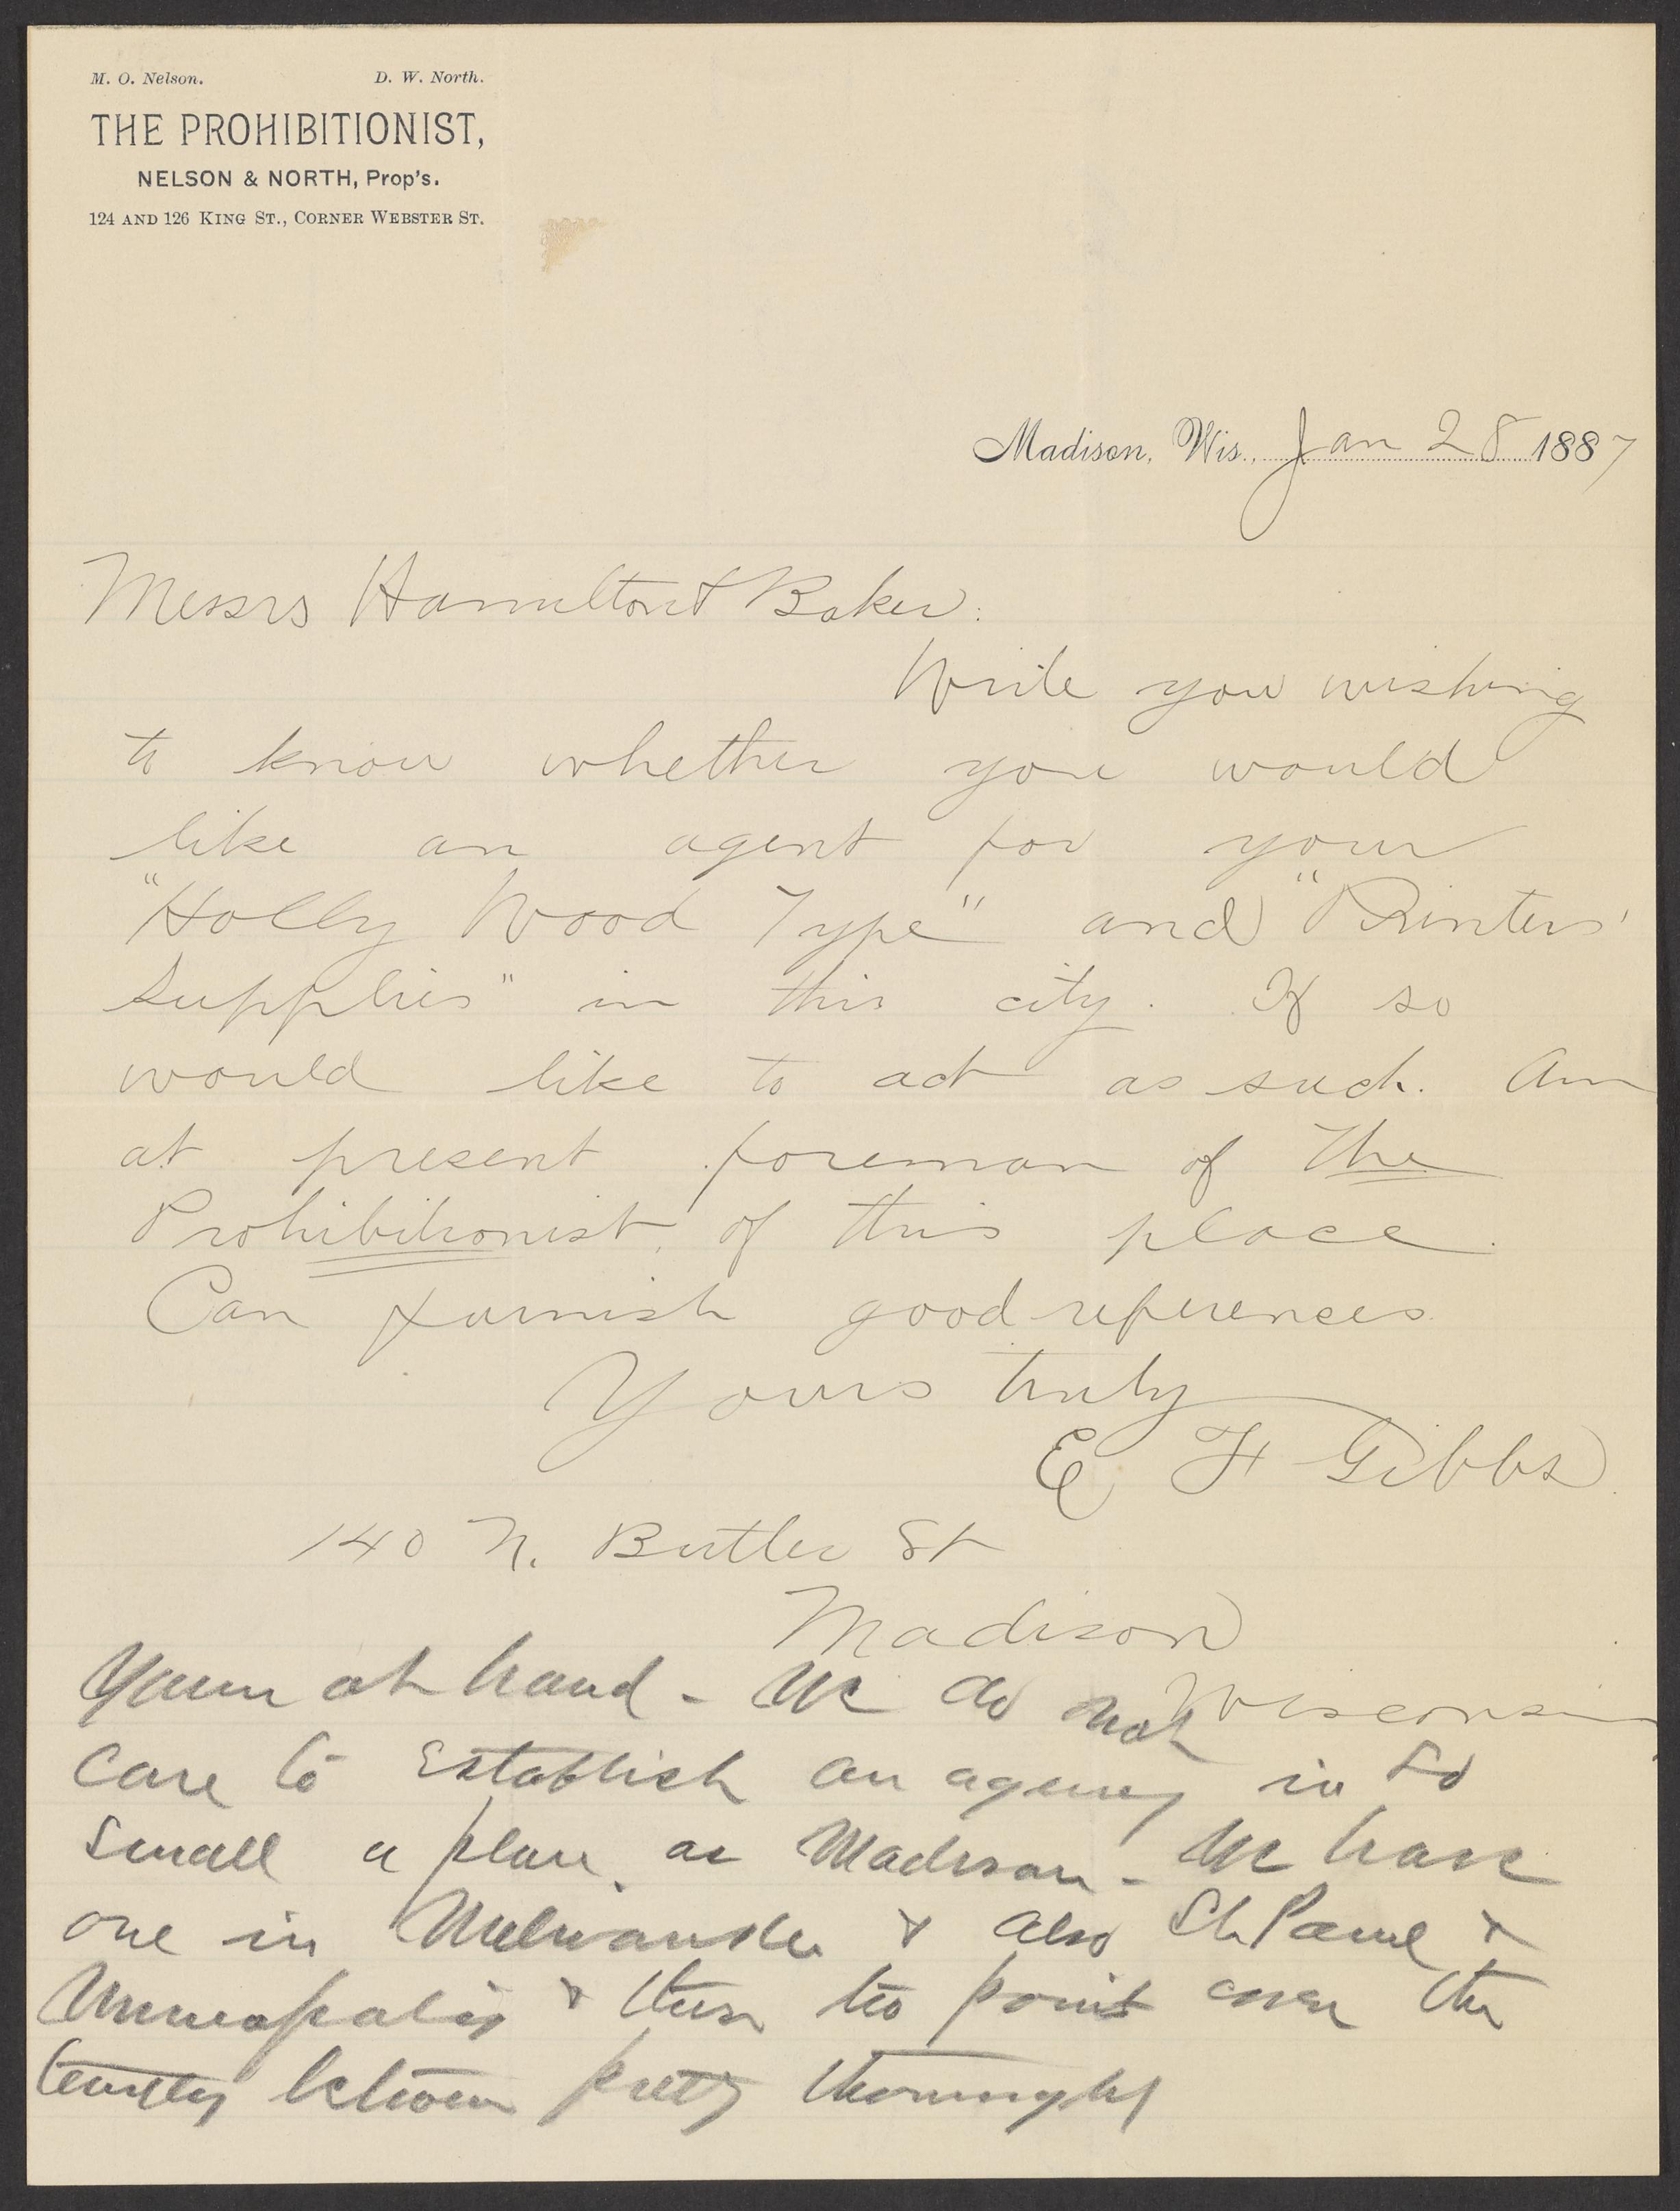 M. O. Nelson. D. W. North.
THE PROHIBITIONIST,
NELSON & NORTH, Prop's.
124 AND 126 KING ST., CORNER WEBSTER ST.
Madison, Wis., Jan 28 1887
Messrs Hamilton & Baker:
Write you wishing
to know whether you would
like an agent for your
"Holly Wood Type" and "Printers'
Supplies" in this city. If so
would like to act as such. Am
at present foreman of The
Prohibitionist, of this place.
Can furnish good references.
Yours truly
E F Gibbs
140 N. Butler St
Madison
Wisconsin
Yours at hand - We do not
care to Establish an agency in so
small a place as Madison - We have
one in Milwaukee & also St. Paul &
Minneapolis & these two points cover the
between pretty thoroughly